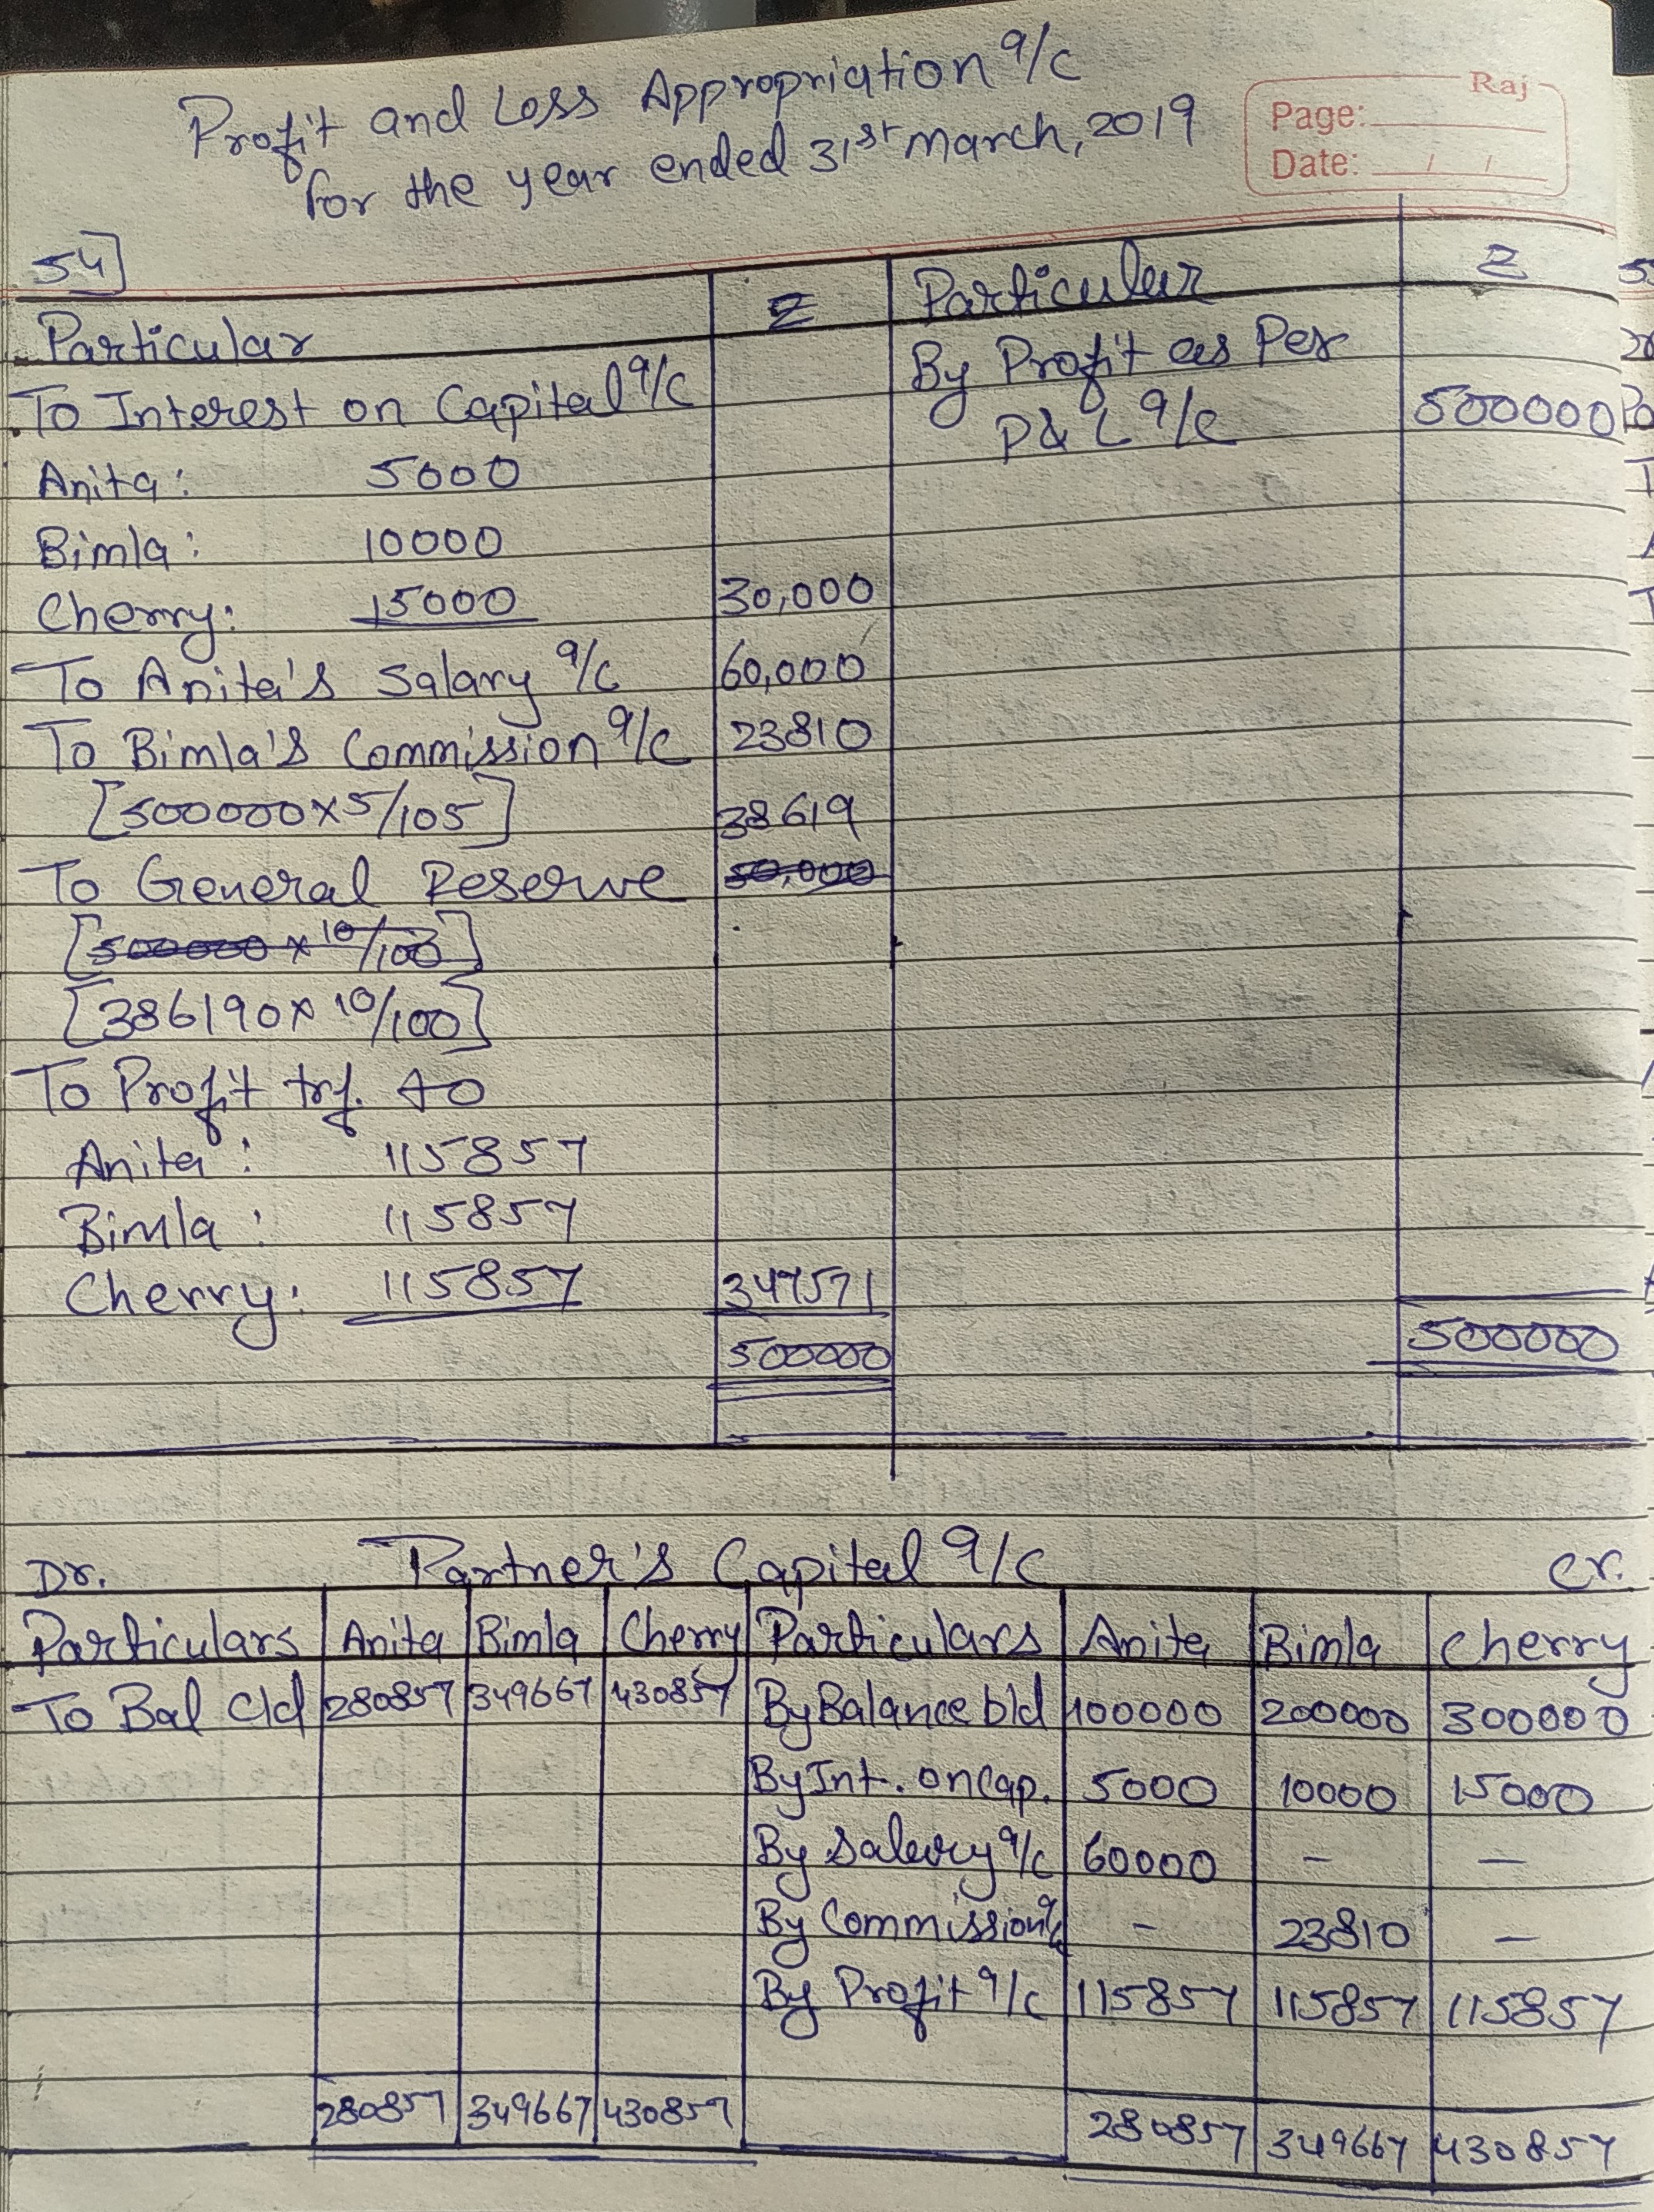 Profit and Loss Appropriation a/c
for the year ended 31st march, 2019
Raj
Page:
Date: / /
54]
Particular ₹ Particular ₹
To Interest on Capital a/c By Profit as Per
P&L a/c 500000
Anita: 5000
Bimla: 10000
Cherry: 15000 30,000
To Anita's Salary a/c 60,000
To Bimla's Commission a/c 23810
[500000×5/105]
38619
To General Reserve 50,000
[500000 × 10/100]
[386190× 10/100]
To Profit trf. to
Anita: 115857
Bimla: 115857
Cherry: 115857 347571
500000 500000
Dr. Partner's Capital a/c Cr.
Particulars Anita Bimla Cherry Particulars Anita Bimla Cherry
To Bal c/d 280857 349667 430857 By Balance b/d 100000 200000 300000
By Int. on Cap. 5000 10000 15000
By Salary a/c 60000 - -
By Commission a/c - 23810 -
By Profit a/c 115857 115857 115857
280857 349667 430857 280857 349667 430857